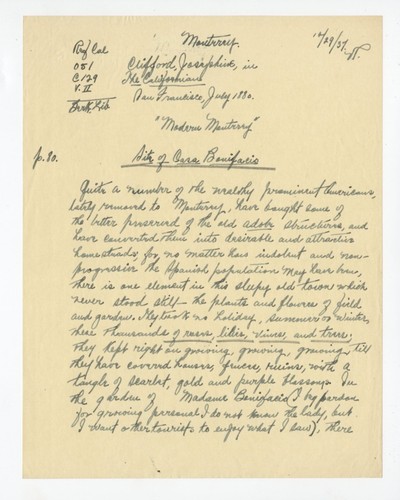 Monterey.
12/29/37.
Ref Cal
051
C129
V. II
Clifford, Josephine, in
The Californian
San Francisco, July 1880.
"Modern Monterey"
p. 80.
Site of Casa Bonifacio
Quite a number of the wealthy prominent Americans,
lately removed to Monterey, have bought some of
the better preserved of the old adobe structures, and
have converted them into desirable and attractive
homesteads, for no matter how indolent and non-
progressive the Spanish population may have been,
there is one element in this sleepy old town which
never stood still — the plants and flowers of field
and garden. They took no holiday, summer or winter,
these thousands of roses, lilies, vines, and trees.
They kept right on growing, growing, growing, till
they have covered houses, fences, ruins, with a
tangle of scarlet, gold and purple blossoms. In
the garden of Madame Bonifacio (I beg pardon
for growing personal I do not know the lady, but
I want other tourists to enjoy what I saw), there